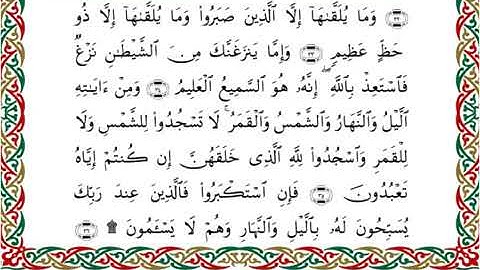 ﴿٣٤﴾ وَمَا يُلَقَّىٰهَآ إِلَّا ٱلَّذِينَ صَبَرُوا۟ وَمَا يُلَقَّىٰهَآ إِلَّا ذُو
حَظٍّ عَظِيمٍ ﴿٣٥﴾ وَإِمَّا يَنزَغَنَّكَ مِنَ ٱلشَّيْطَـٰنِ نَزْغٌ
فَٱسْتَعِذْ بِٱللَّهِ ۖ إِنَّهُۥ هُوَ ٱلسَّمِيعُ ٱلْعَلِيمُ ﴿٣٦﴾ وَمِنْ ءَايَـٰتِهِ
ٱلَّيْلُ وَٱلنَّهَارُ وَٱلشَّمْسُ وَٱلْقَمَرُ ۚ لَا تَسْجُدُوا۟ لِلشَّمْسِ وَلَا
لِلْقَمَرِ وَٱسْجُدُوا۟ لِلَّهِ ٱلَّذِى خَلَقَهُنَّ إِن كُنتُمْ إِيَّاهُ
تَعْبُدُونَ ﴿٣٧﴾ فَإِنِ ٱسْتَكْبَرُوا۟ فَٱلَّذِينَ عِندَ رَبِّكَ
يُسَبِّحُونَ لَهُۥ بِٱلَّيْلِ وَٱلنَّهَارِ وَهُمْ لَا يَسْـَٔمُونَ ۩ ﴿٣٨﴾